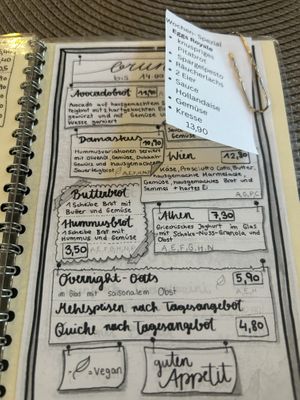 Wochen- Spezial
Eggs Royale
knuspriges
Pitabrot
Spargelpesto
Räucherlachs
2 Eier
Sauce
Hollandaise
Gemüse
Kresse
13,90
bis 14:00
Avocadobrot
Avocado auf hausgemachtem
gewürzt mit
Kresse garniert
Damaskus 10,90
Hummusvariationen
mit Olivenöl, Gemüse, Dukkah
Gewürz und hausgemachtes
Sauerteigbrot
Wien 12,80
Käse, Prosciutto Cotto, Butter,
hausgemachte Marmelade,
Gemüse, hausgemachtes Brot und
Semmel + hartes Ei
A,G,P,C
Butterbrot
1 Scheibe Brot mit
Butter und Gemüse
Hummusbrot
1 Scheibe Brot mit
Hummus und Gemüse
3,50
Athen 7,30
Griechisches Joghurt im Glas
mit Schoko-Nuss-Granola und
Obst
A,E,F,G,H,N
Overnight-Oats 5,90
im Glas mit saisonalem Obst
A,E,H
Mehlspeisen nach Tagesangebot
Quiche nach Tagesangebot 4,80
=vegan
guten
Appetit